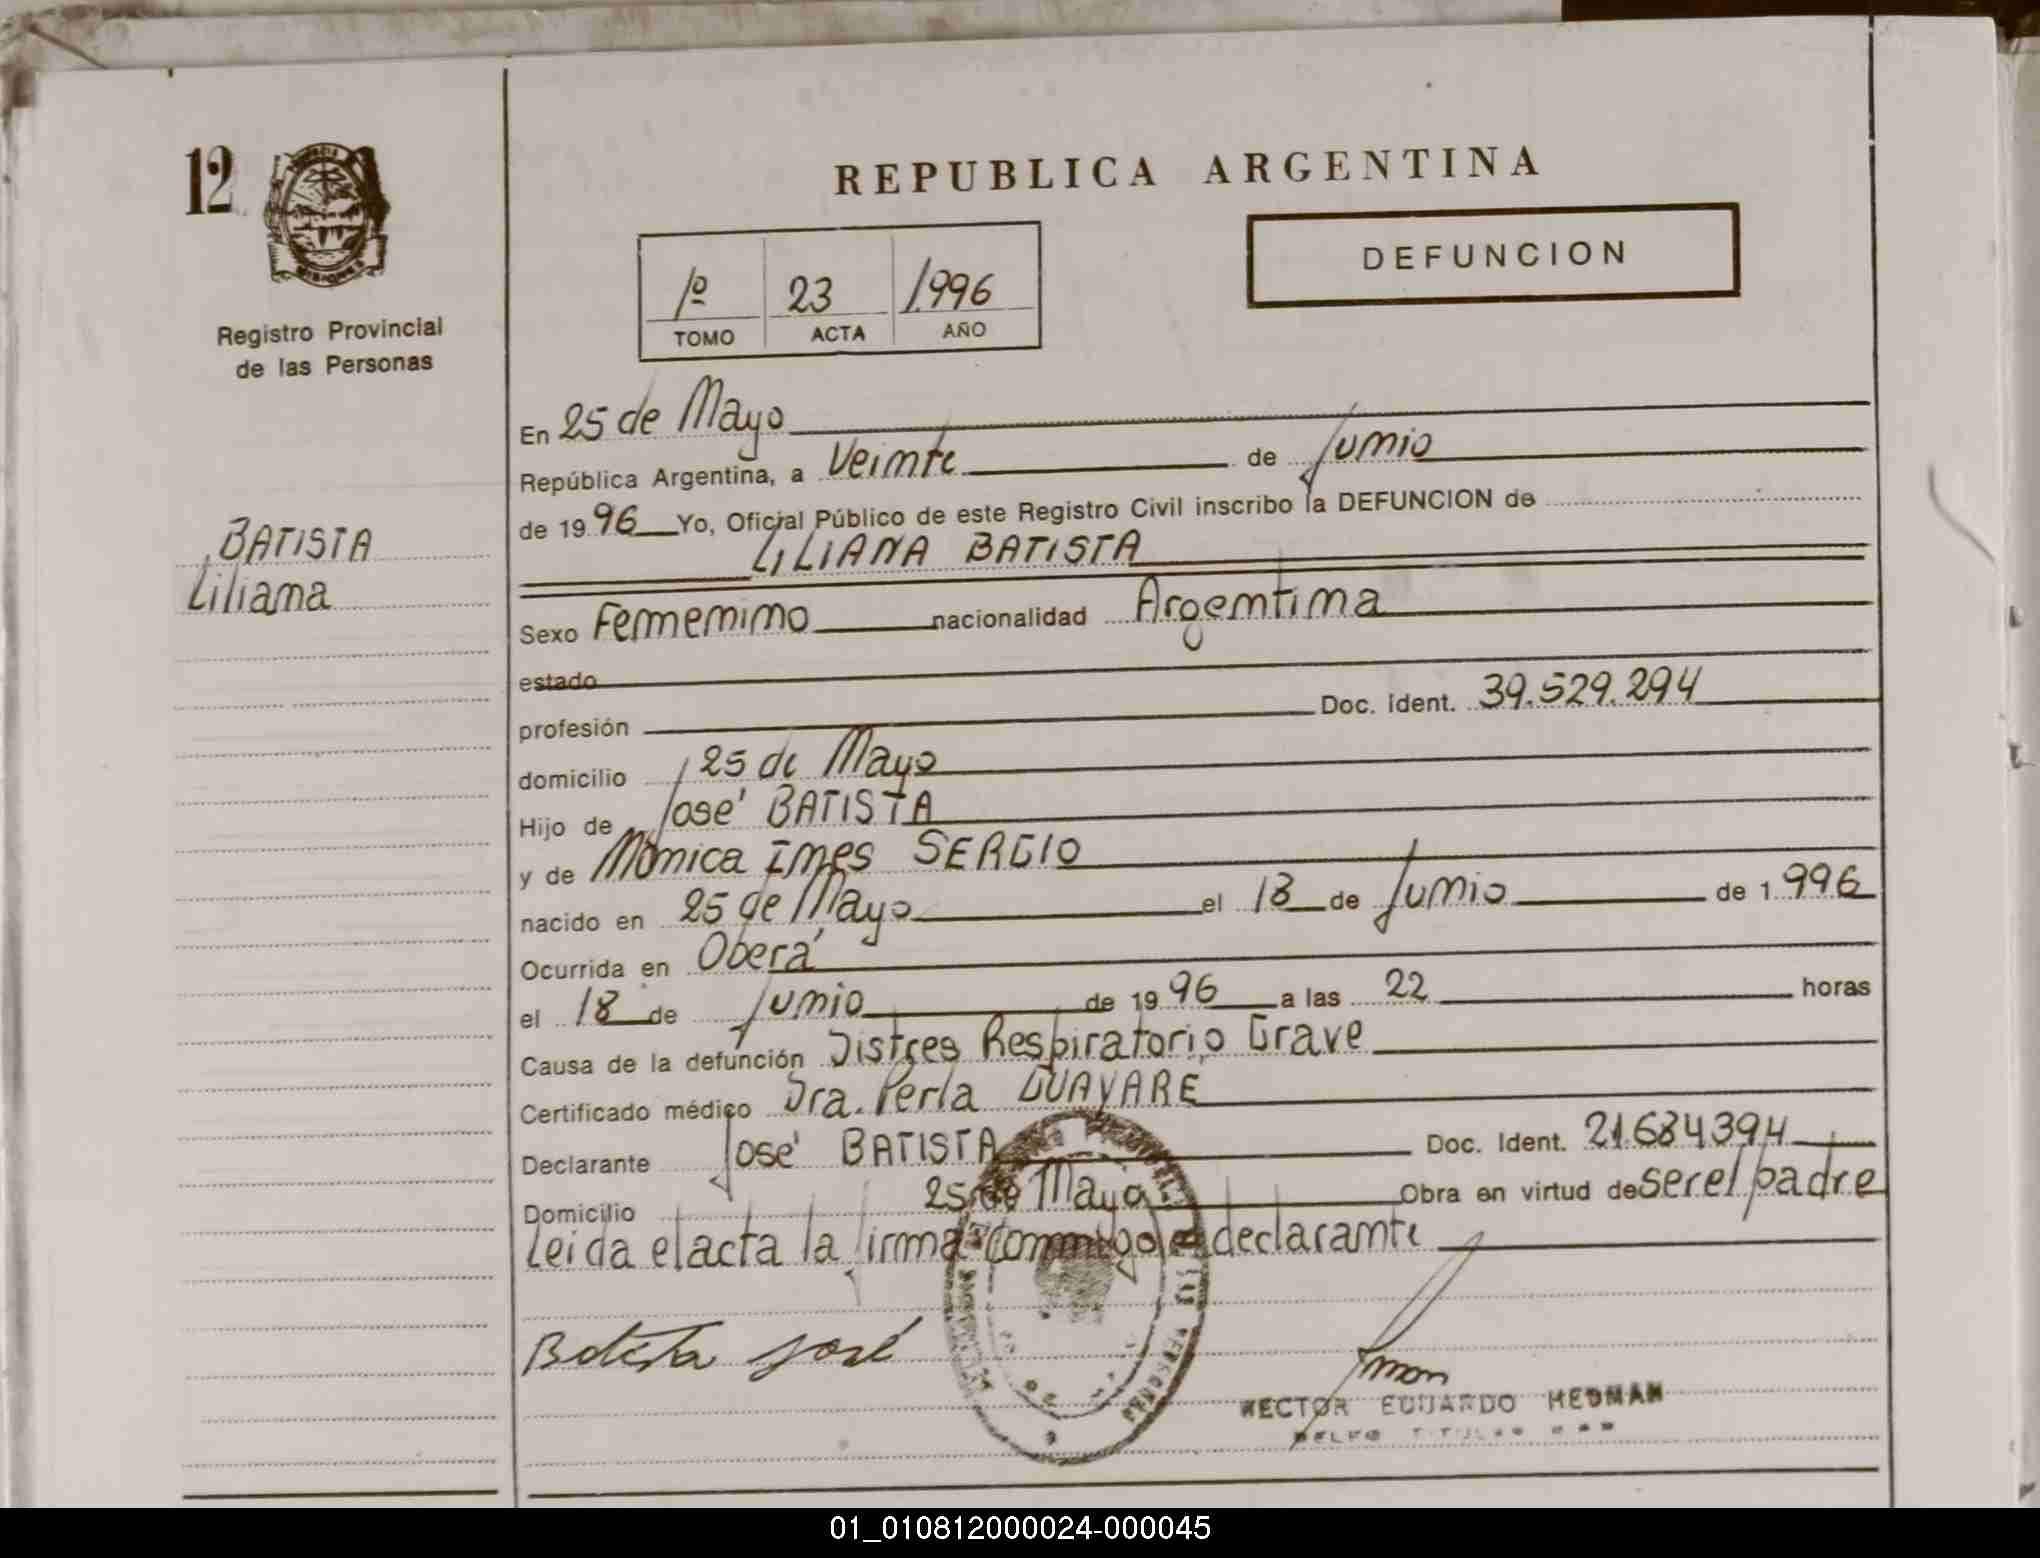 12
Registro Provincial
de las Personas
BATISTA
Liliana
REPUBLICA ARGENTINA
1º 23 1.996
TOMO ACTA AÑO
DEFUNCION
En 25 de Mayo
República Argentina, a Veinte de Junio
de 19 96 Yo, Oficial Público de este Registro Civil inscribo la DEFUNCION de
LILIANA BATISTA
Sexo Femenino nacionalidad Argentina
estado
profesión Doc. Ident. 39.529.294
domicilio 25 de Mayo
Hijo de José BATISTA
y de Mónica Ines SERGIO
nacido en 25 de Mayo el 18 de Junio de 1.996
Ocurrida en Oberá
el 18 de Junio de 19 96 a las 22 horas
Causa de la defunción Distres Respiratorio Grave
Certificado médico Dra. Perla GUAYARE
Declarante José BATISTA Doc. Ident. 21.684394
Domicilio 25 de Mayo Obra en virtud de ser el padre
Leida el acta la firma conmigo el declarante
Batista José
HECTOR EDUARDO HEDMAN
01_010812000024-000045